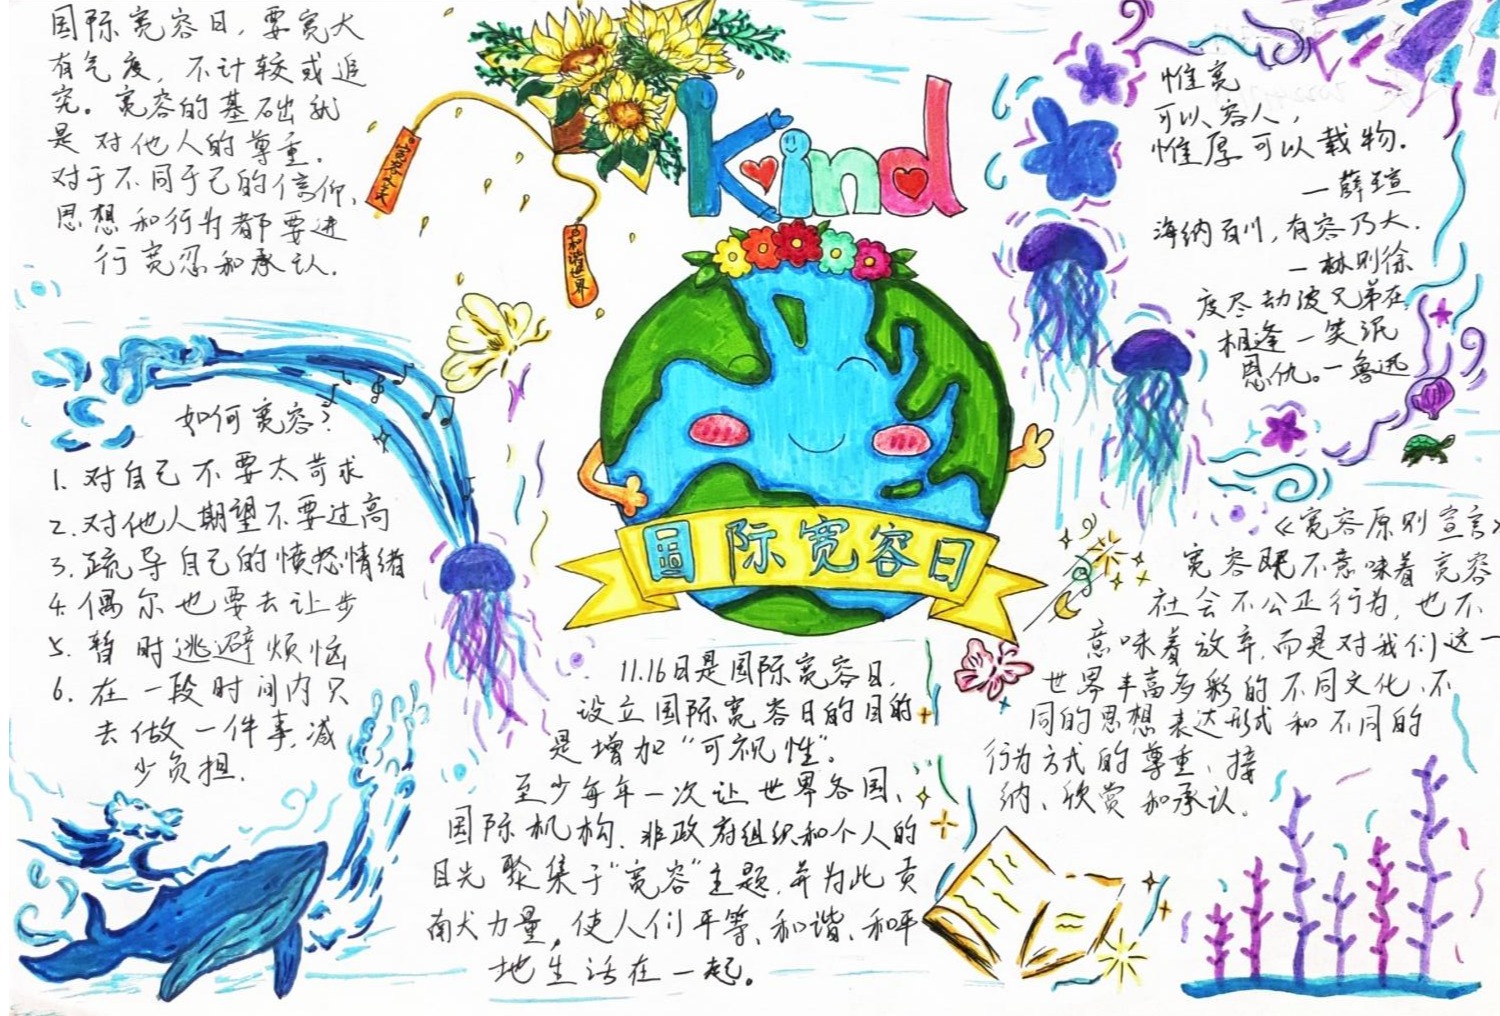 国际宽容日，要宽大
有气度，不计较或追
究。宽容的基础就
是对他人的尊重。
对于不同于己的信仰、
思想和行为都要进
行宽忍和承认.
如何宽容?
1. 对自己不要太苛求
2. 对他人期望不要过高
3. 疏导自己的愤怒情绪
4. 偶尔也要去让步
5. 暂时逃避烦恼
6. 在一段时间内只
去做一件事,减
少负担.
和谐世界
Kind
国际宽容日
11.16日是国际宽容日,
设立国际宽容日的目的
是增加“可视性”。
至少每年一次让世界各国、
国际机构、非政府组织和个人的
目光聚集于“宽容”主题,并为此贡
献力量,使人们平等、和谐、和平
地生活在一起。
惟宽
可以容人,
惟厚可以载物.
—薛瑄
海纳百川,有容乃大.
—林则徐
度尽劫波兄弟在
相逢一笑泯
恩仇。—鲁迅
《宽容原则宣言》
宽容既不意味着宽容
社会不公正行为,也不
意味着放弃,而是对我们这一
世界丰富多彩的不同文化、不
同的思想表达形式和不同的
行为方式的尊重、接
纳、欣赏和承认.